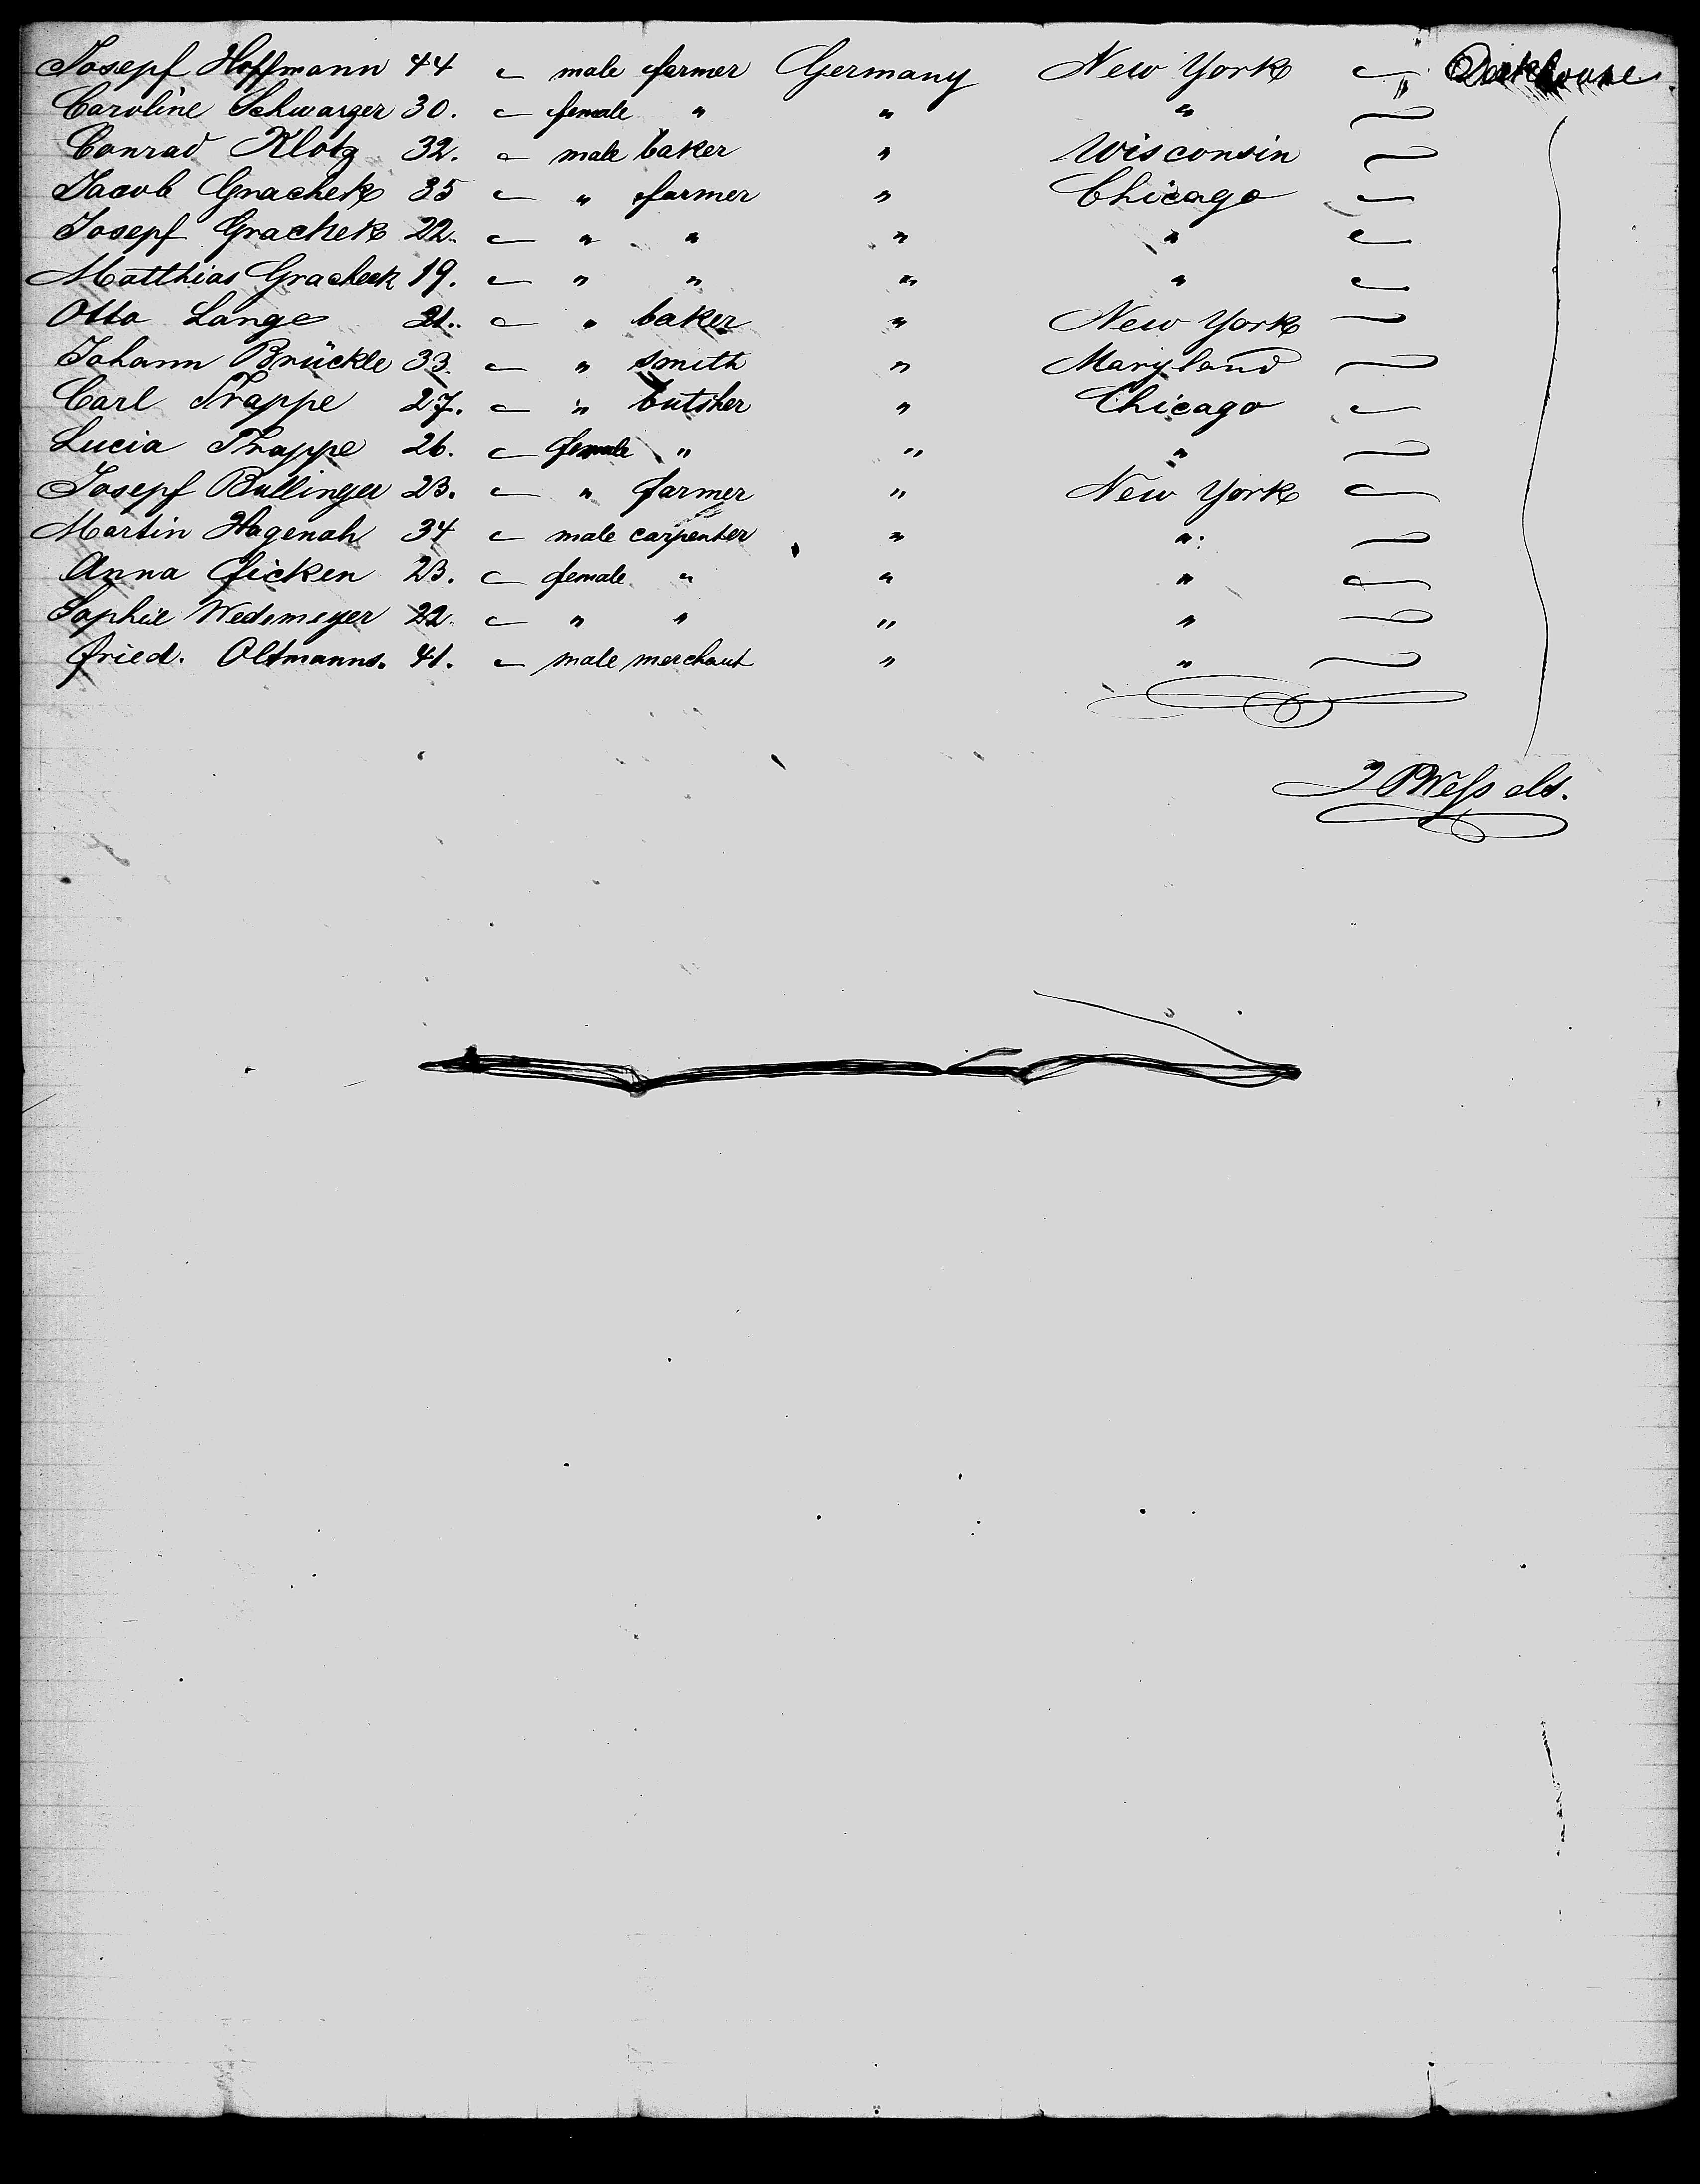 Josepf Hoffmann 44 — male farmer Germany New York — Deckhouse
Caroline Schwarzer 30. — female " " " —
Conrad Klotz 32. — male baker " Wisconsin —
Jacob Grachek 35 — " farmer " Chicago —
Josepf Grachek 22. — " " " " —
Matthias Gracheck 19. — " " " " —
Otto Lange 21. — " baker " New York —
Johann Brückle 33. — " smith " Maryland —
Carl Trappe 27. — " butsher " Chicago —
Lucia Trappe 26. — female " " " —
Josepf Bullinger 23. — " farmer " New York —
Martin Hagenah 34 — male carpenter " " —
Anna Ficken 23. — female " " " —
Sophie Wedemeyer 22. — " " " " —
Fried. Oltmanns. 41. — male merchant " " —
Weſsels.